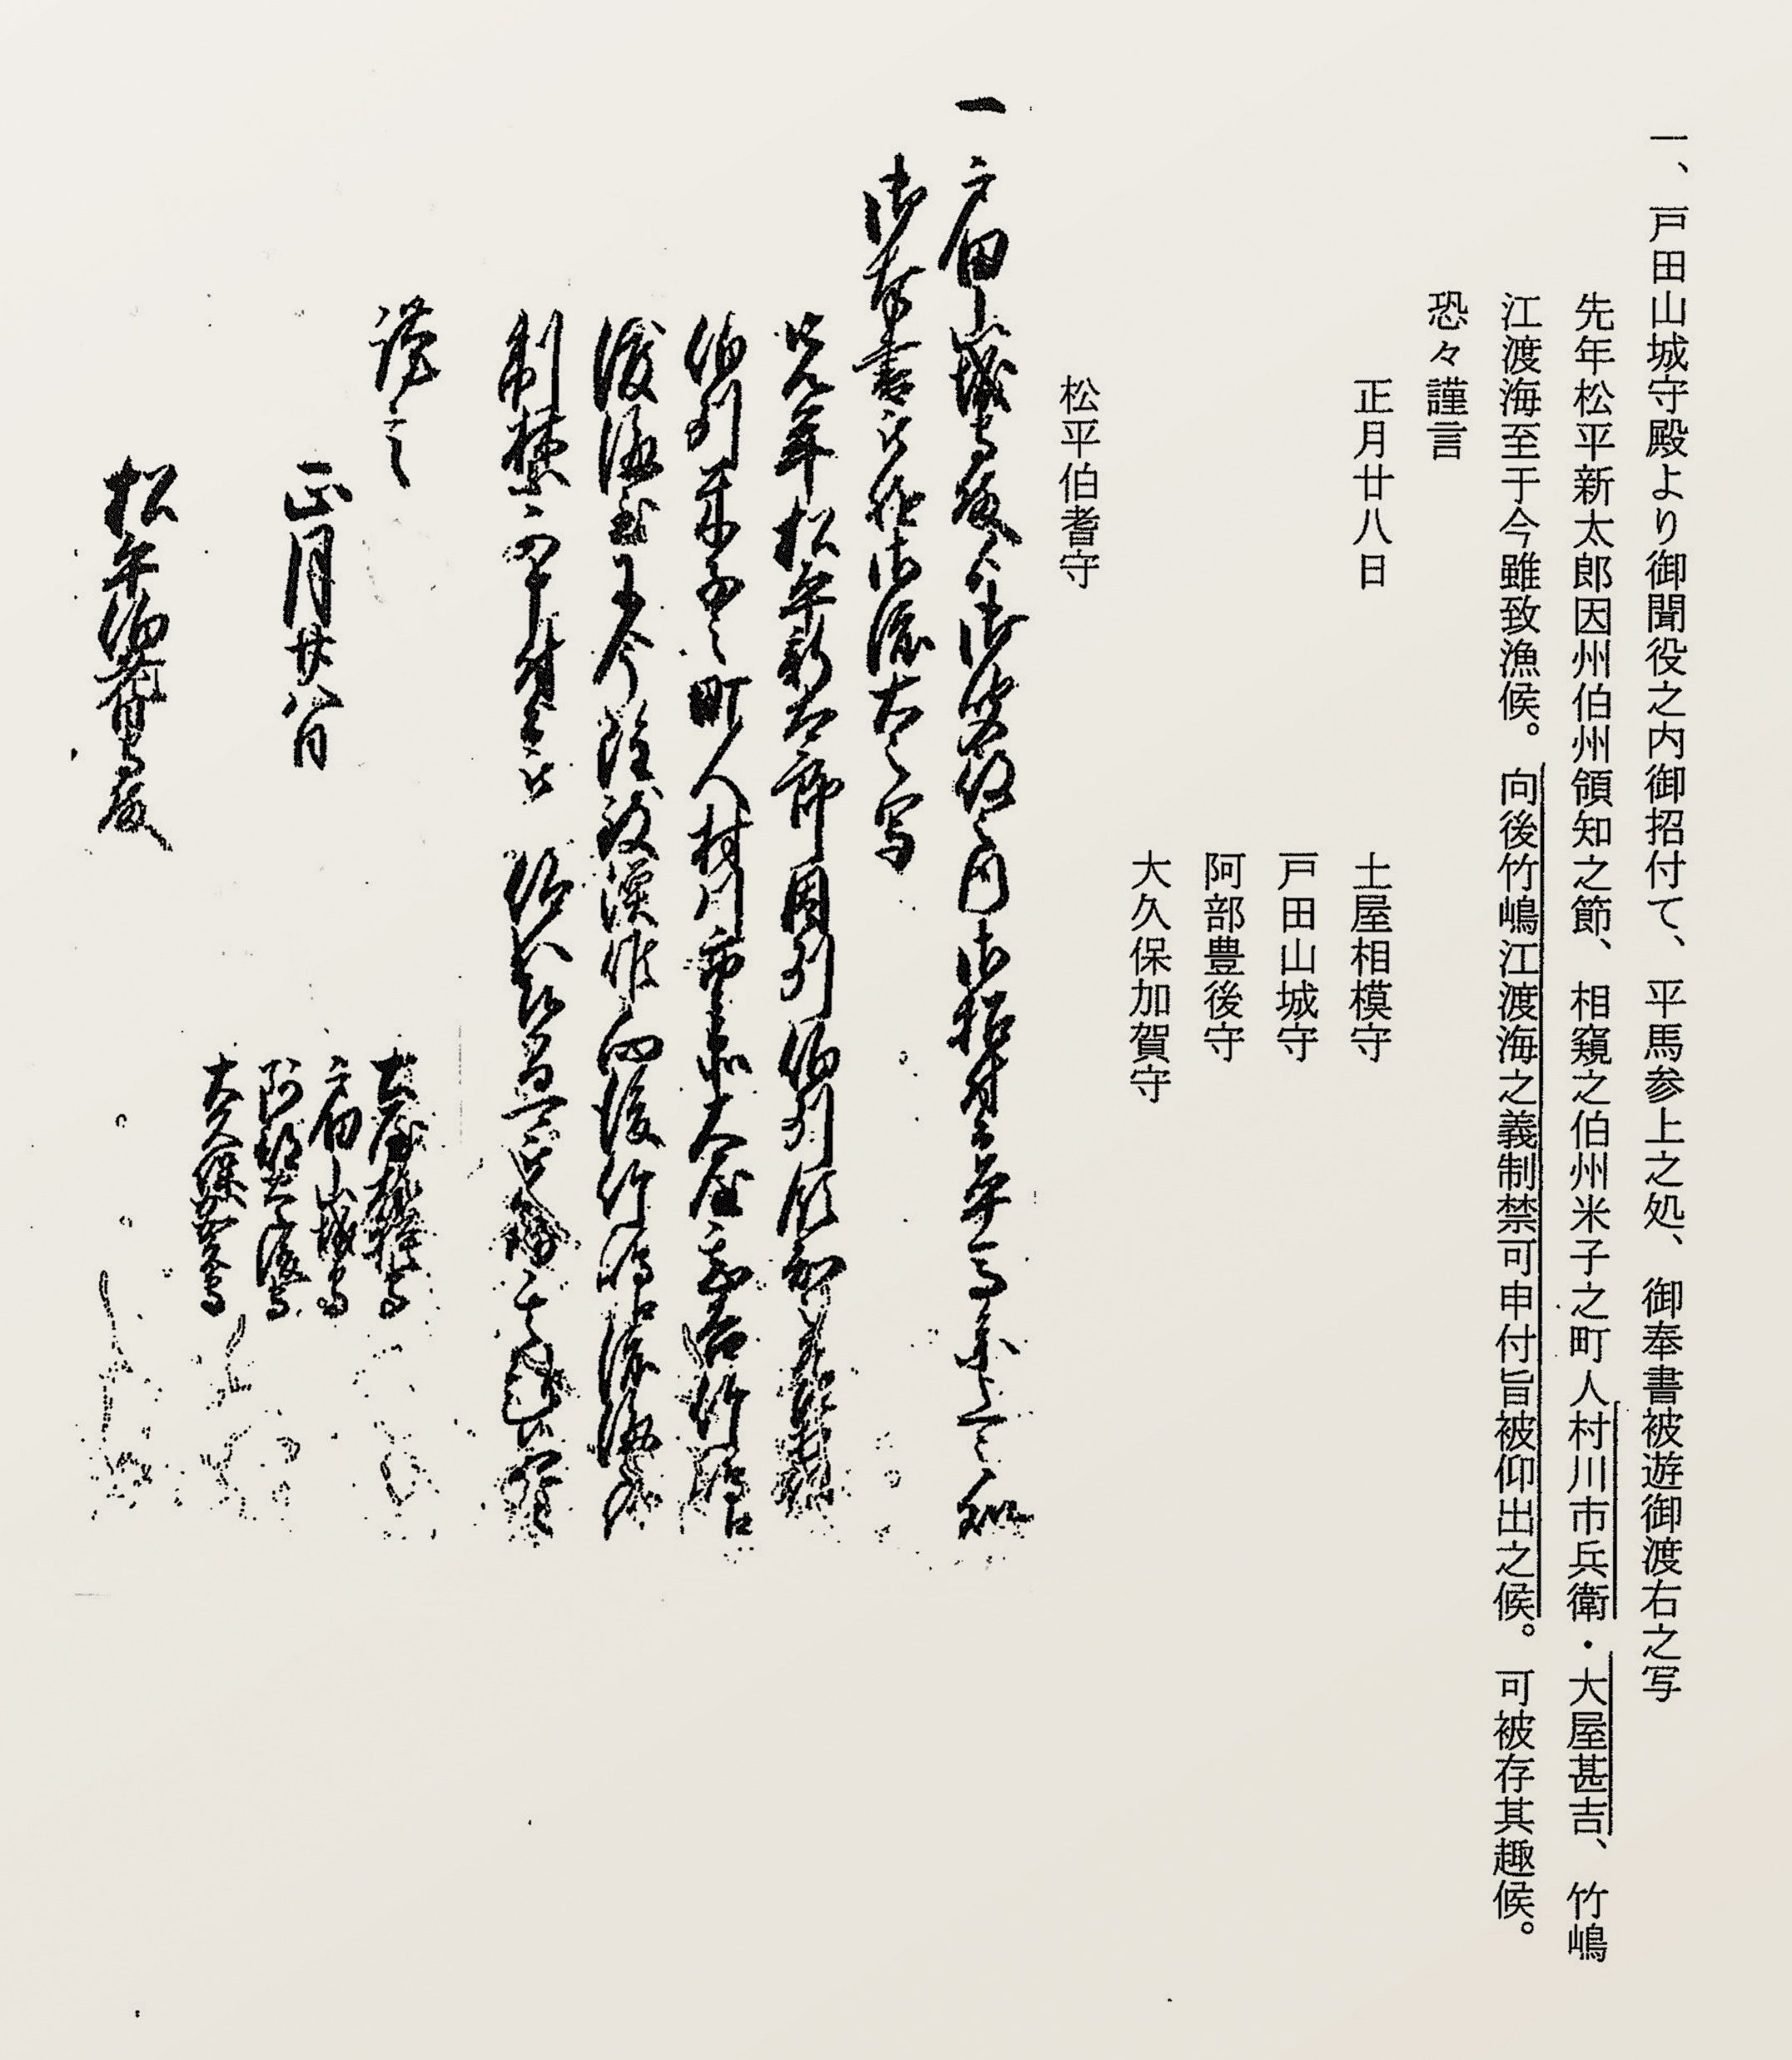 一、戸田山城守殿より御聞役之内御招付て、平馬参上之処、御奉書被遊御渡右之写
先年松平新太郎因州伯州領知之節、相窺之伯州米子之町人村川市兵衛・大屋甚吉、竹嶋
江渡海至于今雖致漁候。向後竹嶋江渡海之義制禁可申付旨被仰出之候。可被存其趣候。
恐々謹言
正月廿八日
土屋相模守
戸田山城守
阿部豊後守
大久保加賀守
松平伯耆守
一 戸田山城守殿より御聞役之内御招付て平馬参上之処
御奉書被遊御渡右之写
先年松平新太郎因州伯州領知之節相窺之
伯州米子之町人村川市兵衛大屋甚吉竹嶋江
渡海至于今雖致漁候向後竹嶋江渡海之義
制禁可申付旨被 仰出之候
謹言
正月廿八日
土屋相模守
戸田山城守
阿部豊後守
大久保加賀守
松平伯耆守殿